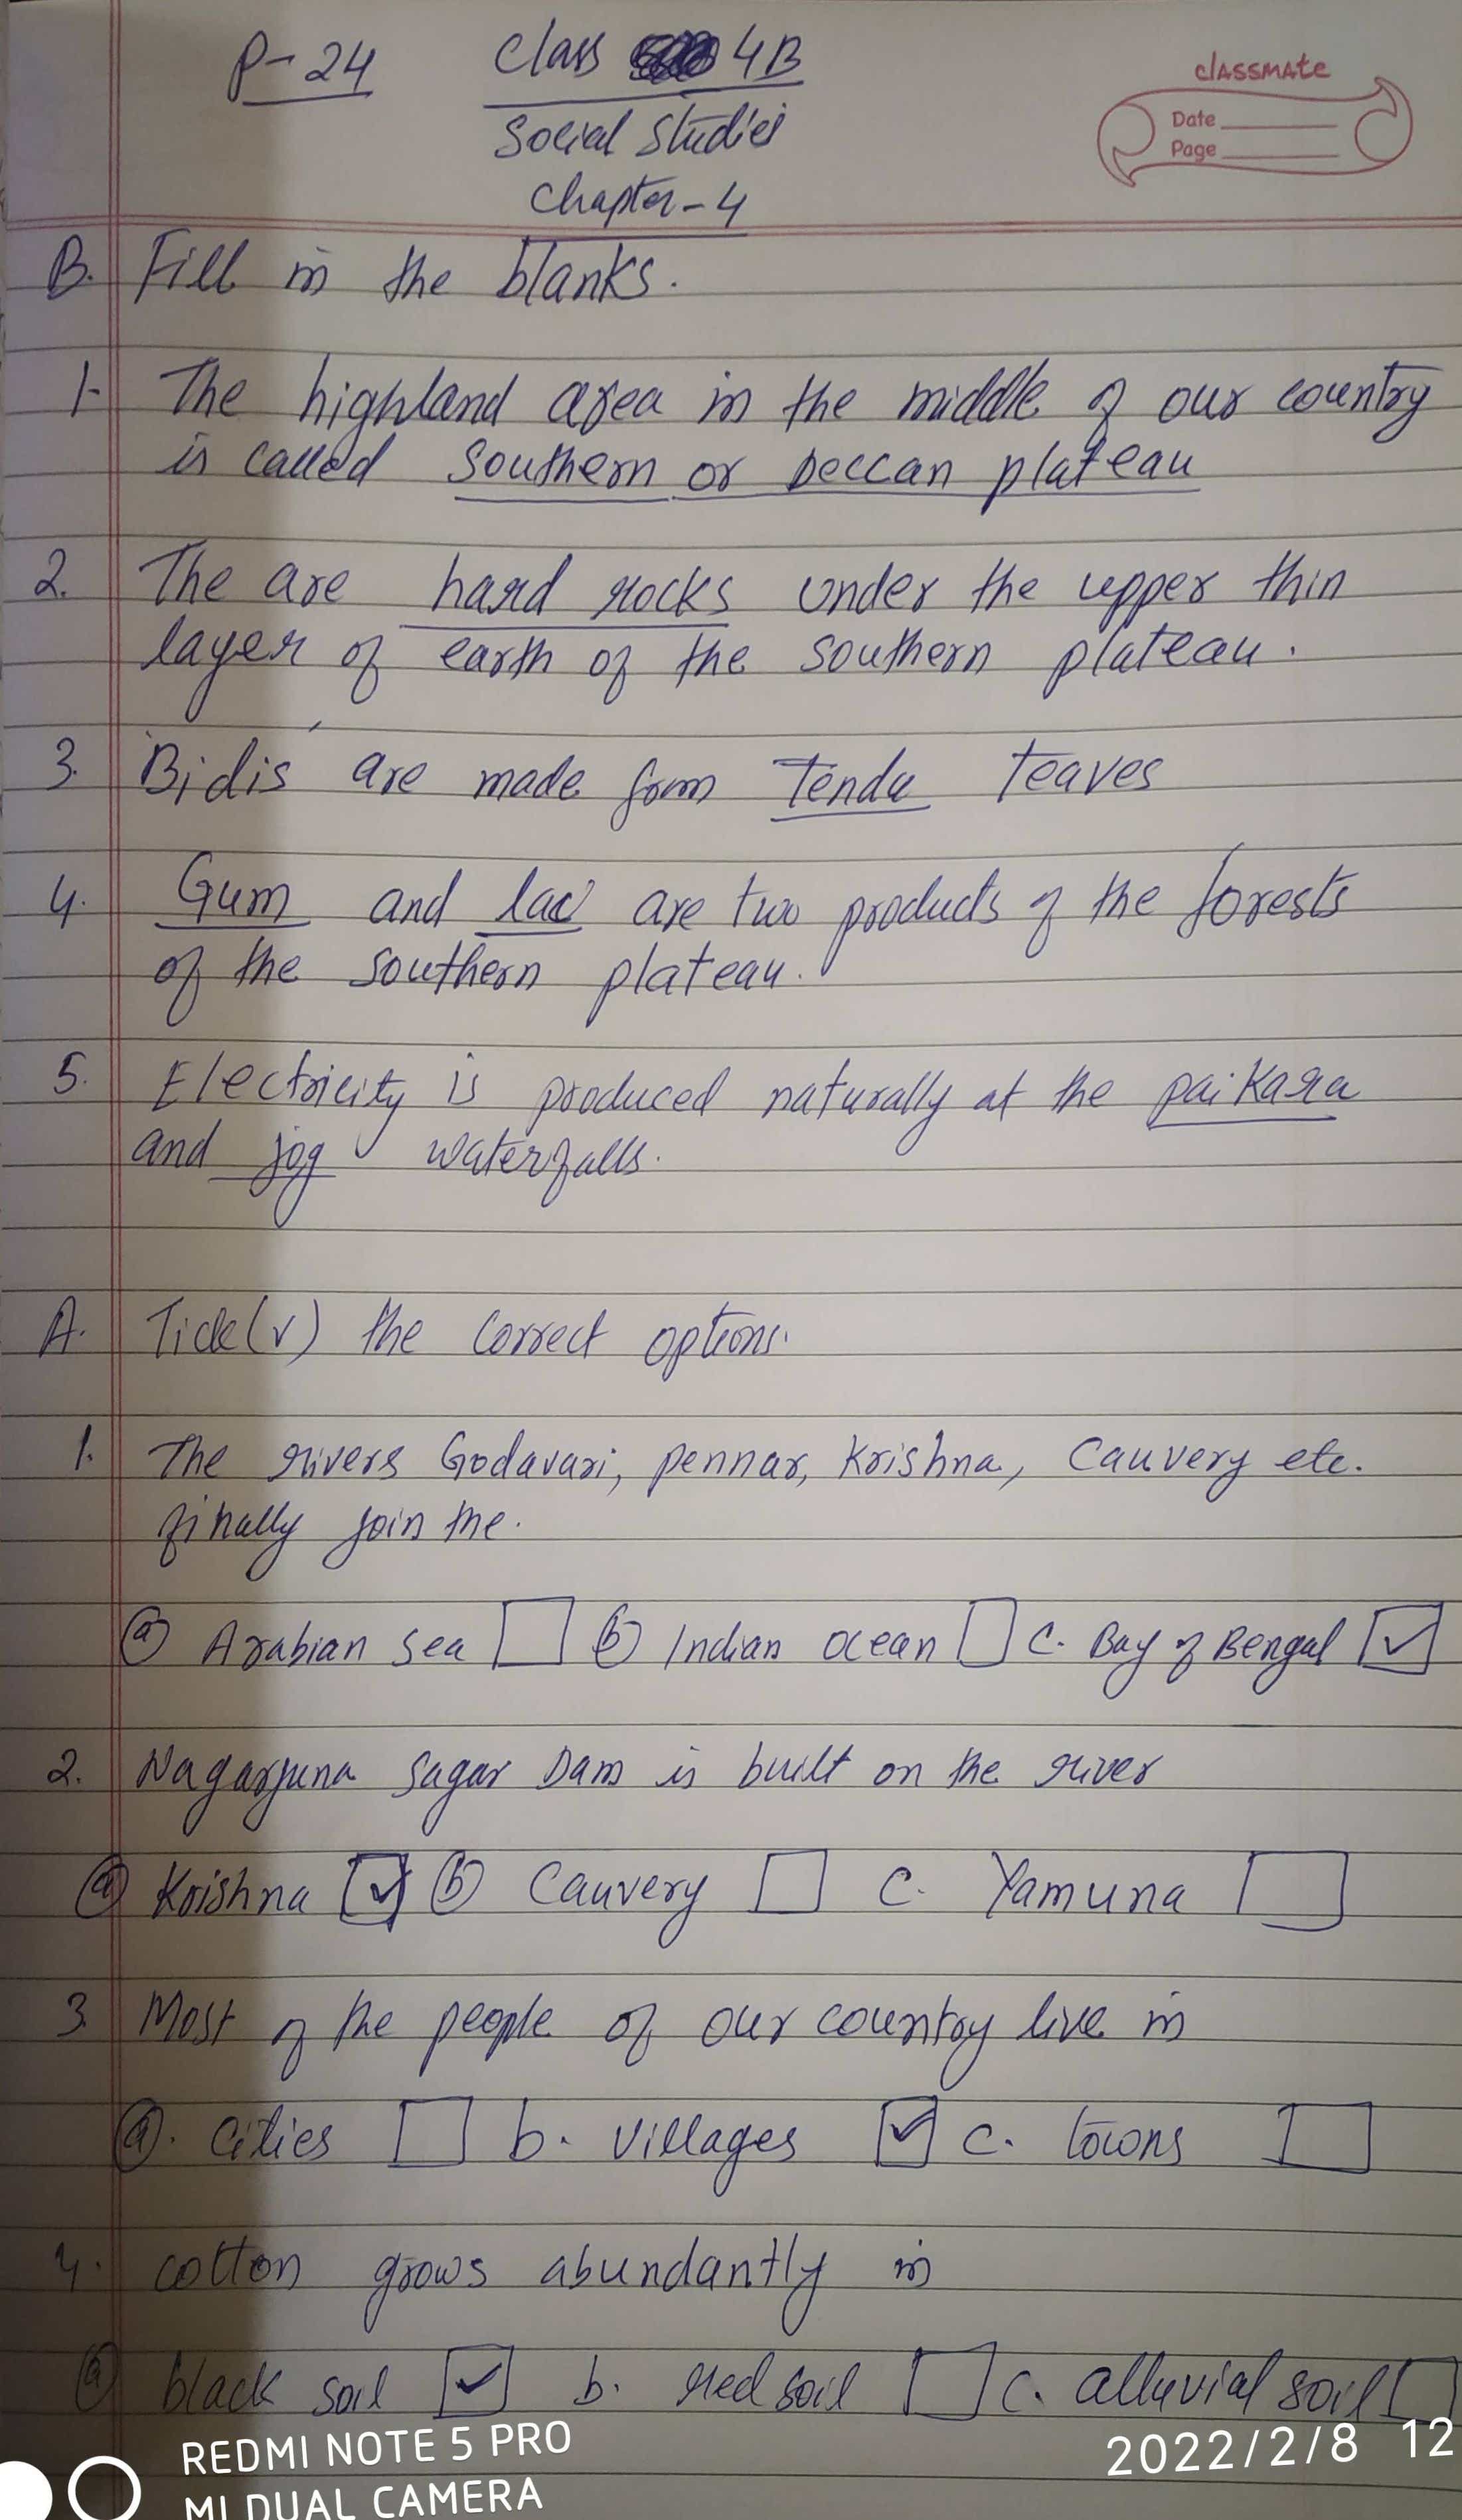 P-24
Class 4B
classmate
Date
Page
Social Studies
Chapter-4
B. Fill in the blanks.
1- The highland area in the middle of our country
is called Southern or Deccan plateau
2. The are hard rocks under the upper thin
layer of earth of the southern plateau.
3. 'Bidis' are made form Tendu leaves
4. Gum and lac are two products of the forests
of the southern plateau.
5. Electricity is produced naturally at the paikara
and jog waterfalls.
A. Tick(✓) the correct options.
1. The rivers Godavari, pennar, Krishna, Cauvery etc.
finally join the.
(a) Arabian sea (b) Indian ocean c. Bay of Bengal ✓
2. Nagarjuna Sagar Dam is built on the river
(a) Krishna ✓ (b) Cauvery c. Yamuna
3. Most of the people of our country live in
(a). cities b. villages ✓ c. towns
4. cotton grows abundantly in
(a) black soil ✓ b. red soil c. alluvial soil
REDMI NOTE 5 PRO
MI DUAL CAMERA
2022/2/8 12